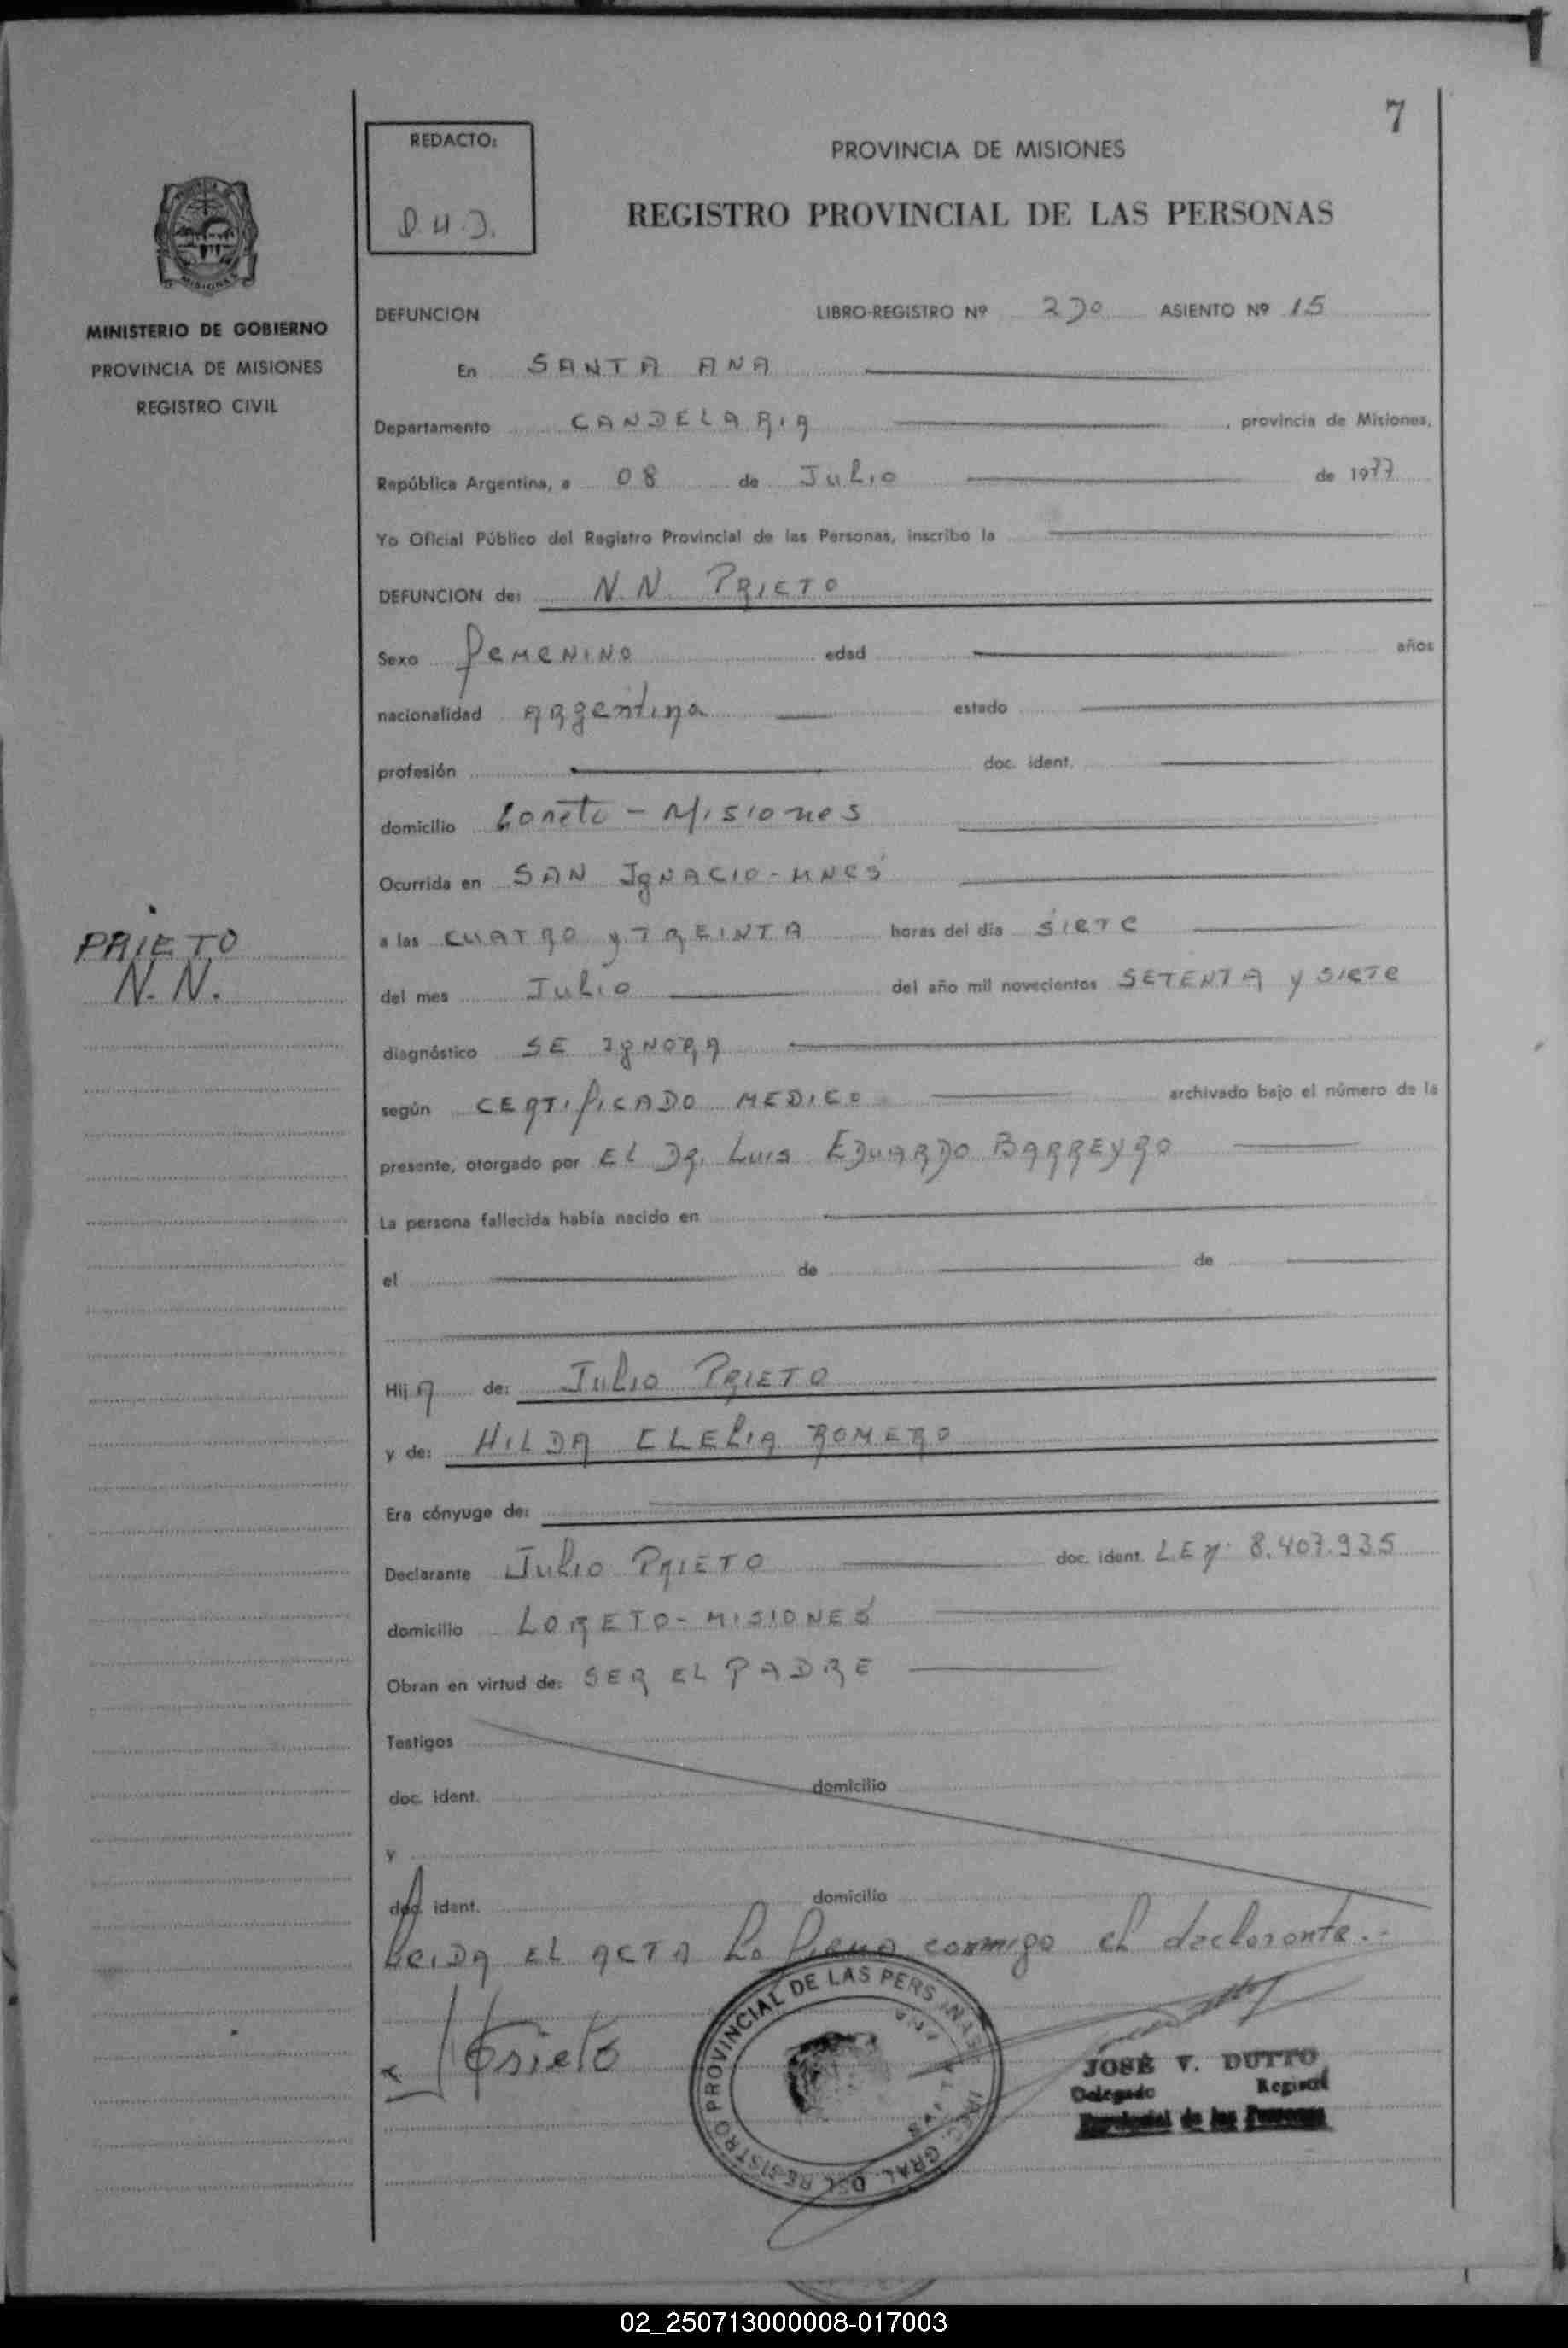 7
REDACTO:
D.H.J.
PROVINCIA DE MISIONES
REGISTRO PROVINCIAL DE LAS PERSONAS
MISIONES
MINISTERIO DE GOBIERNO
PROVINCIA DE MISIONES
REGISTRO CIVIL
DEFUNCION LIBRO-REGISTRO Nº 2do ASIENTO Nº 15
En SANTA ANA
Departamento CANDELARIA, provincia de Misiones,
República Argentina, a 08 de Julio de 1977
Yo Oficial Público del Registro Provincial de las Personas, inscribo la
DEFUNCION de: N.N. PRIETO
Sexo femenino edad años
nacionalidad Argentina estado
profesión doc. ident.
domicilio Loreto - Misiones
Ocurrida en SAN IgNACIO - MNES
PRIETO
N. N.
a las CUATRO y TREINTA horas del día SIETE
del mes Julio del año mil novecientos SETENTA y SIETE
diagnóstico SE IgNORA
según CERTIFICADO MEDICO archivado bajo el número de la
presente, otorgado por EL Dr. Luis EDUARDO BARREYRO
La persona fallecida había nacido en
el de de
Hij A de: Julio PRIETO
y de: HILDA CLELIA ROMERO
Era cónyuge de:
Declarante Julio PRIETO doc. ident. L.E Nº 8.407.935
domicilio LORETO - MISIONES
Obran en virtud de: SER EL PADRE
Testigos
doc. ident. domicilio
y
doc. ident. domicilio
Leida EL ACTA La firma conmigo el declarante.-
x J Prieto
REGISTRO PROVINCIAL DE LAS PERSONAS
GRAL. DEL
JOSÉ V. DUTTO
Delegado Registro
Provincial de las Personas
02_250713000008-017003